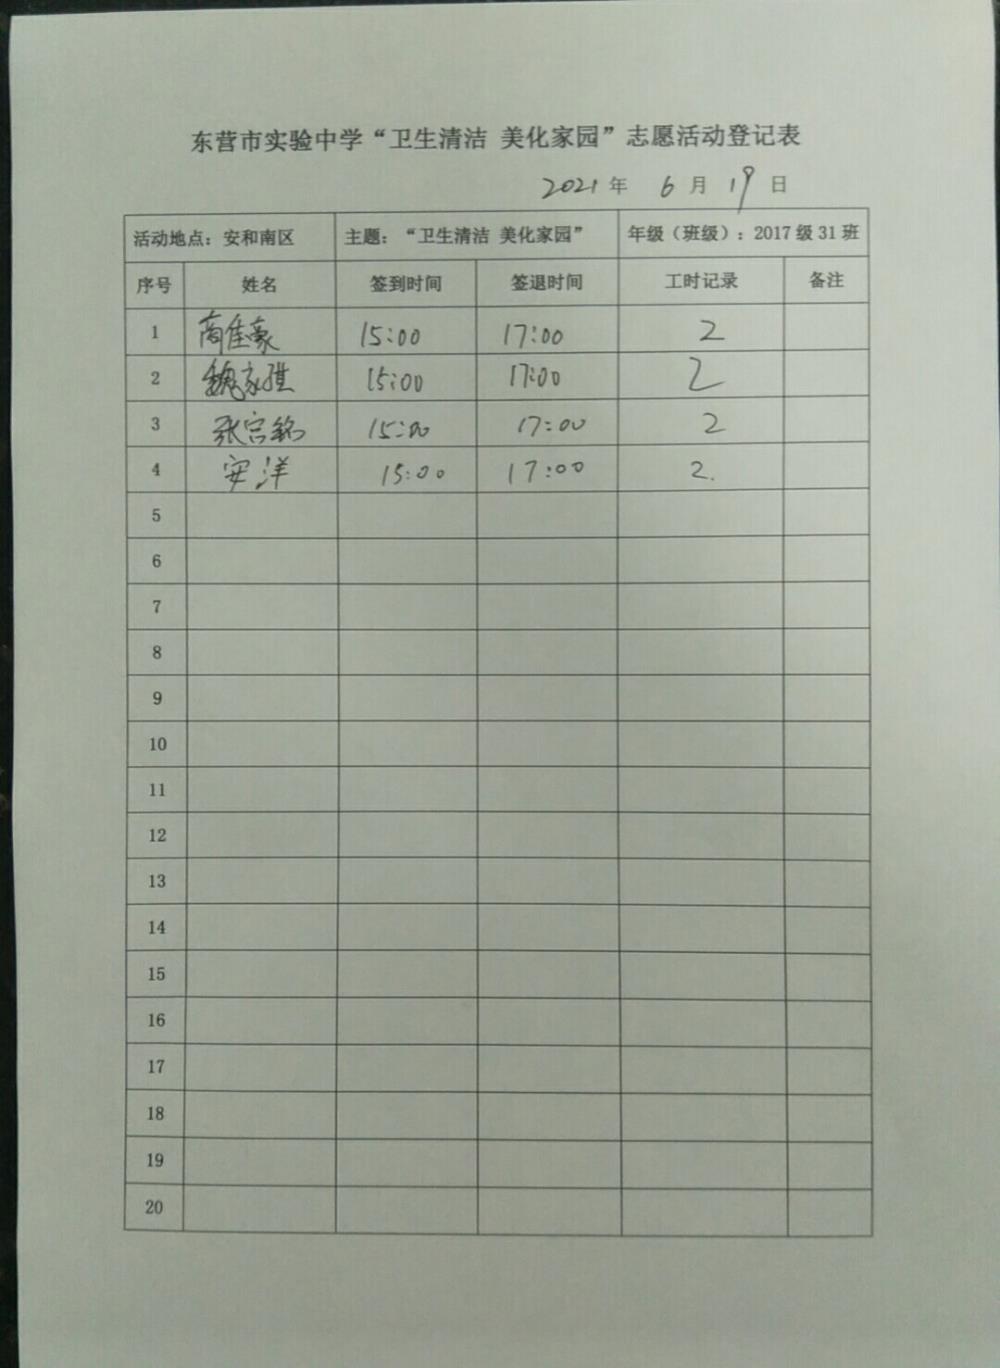 东营市实验中学“卫生清洁 美化家园”志愿活动登记表
2021 年 6 月 19 日
活动地点：安和南区 主题：“卫生清洁 美化家园” 年级（班级）：2017 级 31 班
序号 姓名 签到时间 签退时间 工时记录 备注
1 商佳豪 15:00 17:00 2
2 魏家骐 15:00 17:00 2
3 张宫铭 15:00 17:00 2
4 安洋 15:00 17:00 2.
5
6
7
8
9
10
11
12
13
14
15
16
17
18
19
20